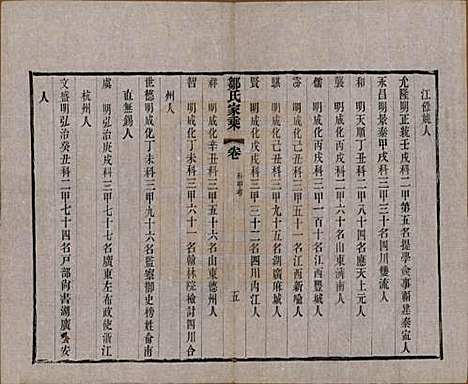 江僊風人
允隆明正統壬戌科二甲第五名提學僉事福建泰宣人
永昌明景泰甲戌科二甲三十名四川雙流人
和 明天順丁丑科二甲八十四名應天上元人
襲 明成化丙戌科二甲十六名山東濟南人
儒 明成化丙戌科三甲一百十名江西豐城人
壽 明成化己丑科三甲五十一名江西新喻人
騏 明成化己丑科三甲九十五名湖廣麻城人
賢 明成化戊戌科三甲三十二名四川內江人
鄒氏家乘 卷 科甲考 五
祥 明成化辛丑科三甲五十六名山東德州人
智 明成化丁未科三甲六十一名翰林院檢討四川合
州人
世德明成化丁未科三甲九十六名監察御史榜姓俞南
直無錫人
虞 明弘治庚戌科三甲六十一名廣東左布政使浙江
杭州人
文盛明弘治癸丑科三甲七十四名戶部尚書湖廣公安
人